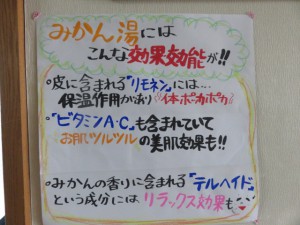 みかん湯には
こんな効果効能が!!
・皮に含まれる「リモネン」には…
保温作用があり体ポカポカ
・「ビタミンA・C」も含まれていて
お肌ツルツルの美肌効果も!!
・みかんの香りに含まれる「テルヘイド」
という成分にはリラックス効果も